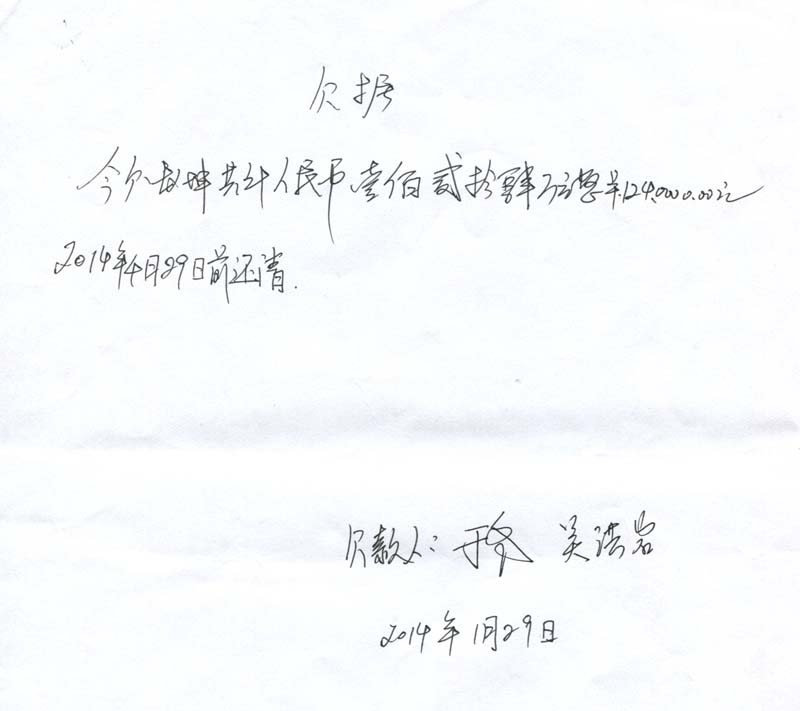 欠据
今欠赵坤共计人民币壹佰贰拾肆万元整¥.124,0000.00元
2014年4月29日前还清.
欠款人： 吴洪岩
2014年1月29日